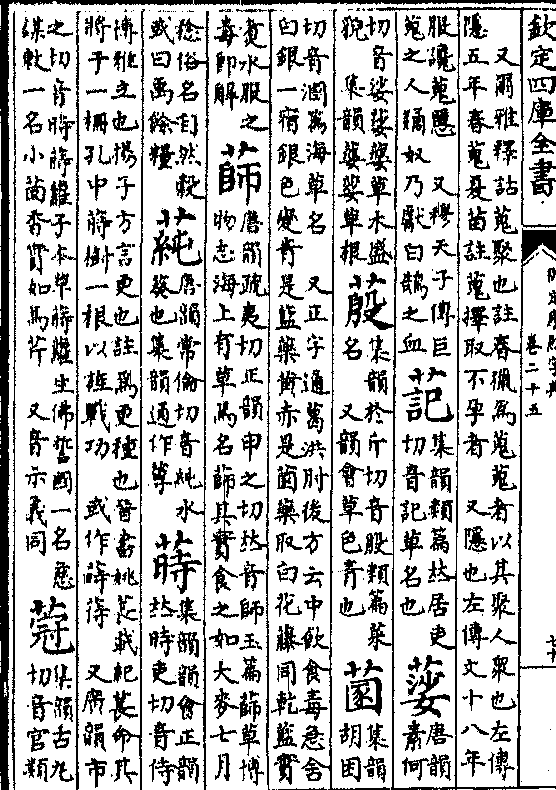 欽定四庫全書
卷二十五
又爾雅釋詁蒐聚也註春獵爲蒐蒐者以其聚人衆也左傳
隱五年春蒐夏苗註蒐擇取不孕者 又隱也左傳文十八年
服讒蒐慝 又穆天子傳巨
蒐之人奴乃獻白鵠之血
集韻類篇𠀤居吏
切音記草名也
唐韻
素何
切音娑草木盛
貌 集韻草根
蒑
集韻於斤切音殷類篇菜
名 又韻會草色青也
集韻
胡困
切音溷篇海草名 又正字通葛洪肘後方云中飲食毒急含
白銀一宿銀色變青是藍藥黃赤是菌藥取白花藤同乾藍實
煑水服之
毒即解
蒒
唐韻疏夷切正韻申之切𠀤音師玉篇蒒草博
物志海上有草焉名蒒其實食之如大麥七月
稔俗名自然穀
或曰禹餘糧
蒓
唐韻常倫切音純水
葵也集韻通作蓴
蒔
集韻韻會正韻
𠀤時吏切音侍
博雅立也揚子方言更也註爲更種也晉書姚萇載紀萇命其
將于一柵孔中蒔樹一根以旌戰功 或作 又廣韻市
之切音時蒔蘿子本草蒔蘿生佛誓國一名慈
謀勒一名小茴香實如馬芹 又音示義同
蒄
集韻古丸
切音官類